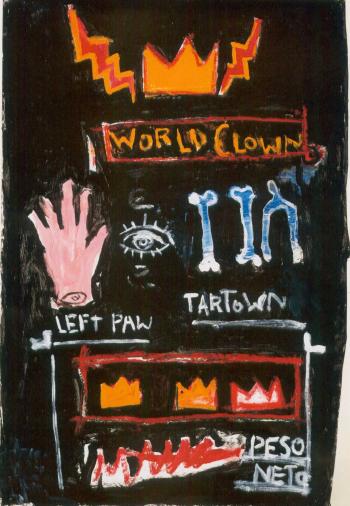 WORLD CLOWN
LEFT PAW
TARTOWN
PESO
NETO